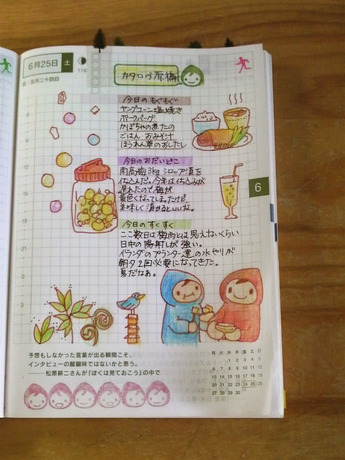 6月25日 土
カタログ原稿
今日のもぐもぐ
ヤングコーン塩焼き
かぼちゃの煮たの
ごはん おみそ汁
ほうれん草のおひたし
今日のおだいどこ
南高梅3kg シロップ漬を
仕込んだ。今年は仕込みが
遅れたので、梅が
黄色くなってしまったけど、
美味しく漬かるといいな。
今日のすくすく
ここ数日は梅雨とは思えないくらい
日中の陽射しが強い。
ベランダのプランター達の水やりが
朝夕2回必要になってきた。
夏だなぁ。
6
予想もしなかった言葉が出る瞬間こそ、
インタビューの醍醐味ではないかと思う。
――松原耕二さんが『ぼくは見ておこう』の中で
月 火 水 木 金 土 日
1 2 3 4 5
6 7 8 9 10 11 12
13 14 15 16 17 18 19
20 21 22 23 24 25 26
27 28 29 30